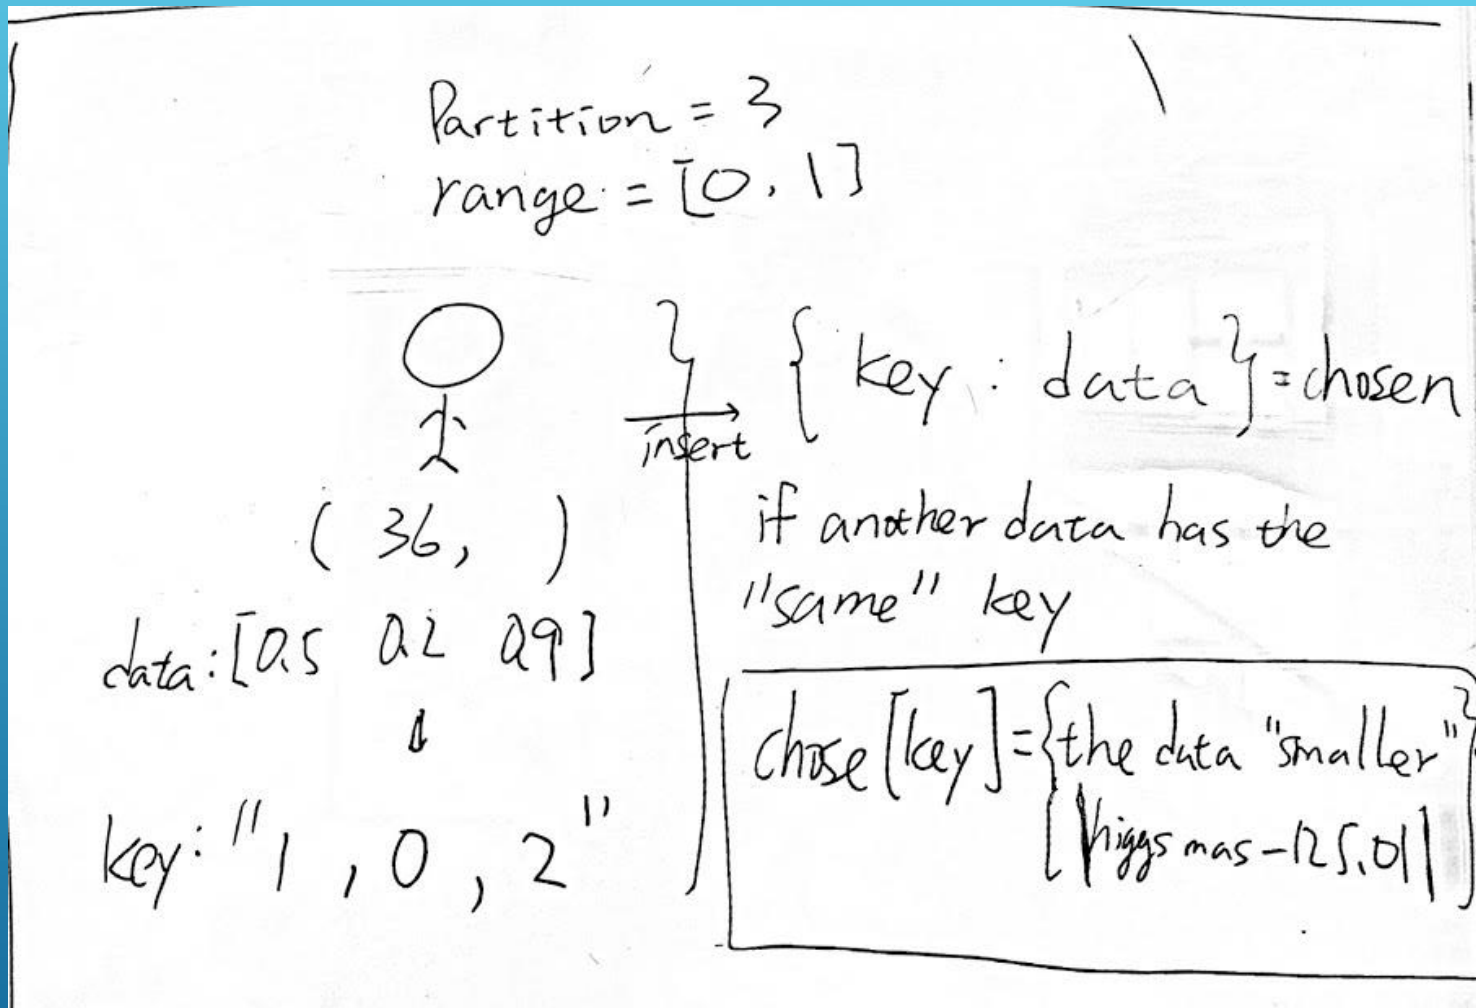 Partition = 3
range = [0, 1]
(36, )
data: [0.5 0.2 0.9]
key: "1, 0, 2"
insert
{key : data} = chosen
if another data has the
"same" key
chose [key] = {the data "smaller"
|higgs mas - 125.01|}